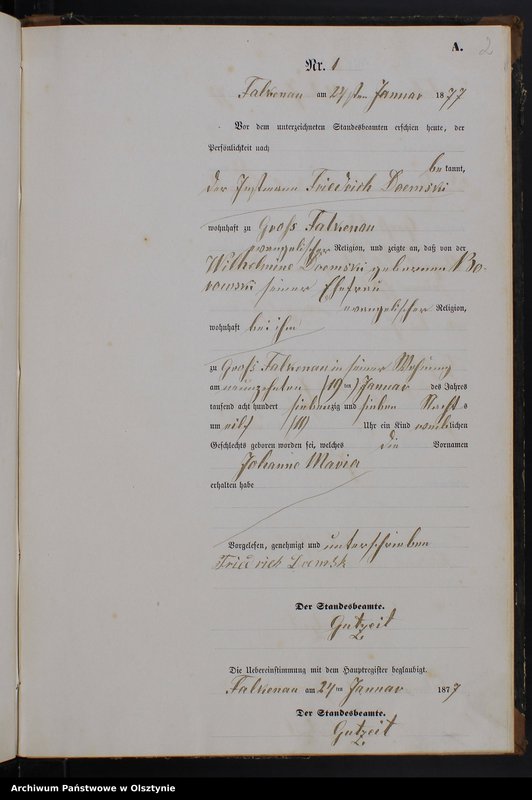 A. 2
Nr. 1
Falkenau am 24sten Januar 1877
Vor dem unterzeichneten Standesbeamten erschien heute, der
Persönlichkeit nach
bekannt,
der Instmann Friedrich
wohnhaft zu Groß Falkenau
evangelischer Religion, und zeigte an, daß von der
Wilhelmine geborenen
seiner Ehefrau
evangelischer Religion,
wohnhaft bei ihm
zu Groß Falkenau in seiner Wohnung
am neunzehnten (19ten) Januar des Jahres
tausend acht hundert siebenzig und sieben Nachts
um elf (11) Uhr ein Kind weiblichen
Geschlechts geboren worden sei, welches die Vornamen
Johanne Maria
erhalten habe
Vorgelesen, genehmigt und unterschrieben
Friedrich
Der Standesbeamte.
Gutzeit
Die Uebereinstimmung mit dem Hauptregister beglaubigt.
Falkenau am 24ten Januar 1877
Der Standesbeamte.
Gutzeit
Archiwum Państwowe w Olsztynie